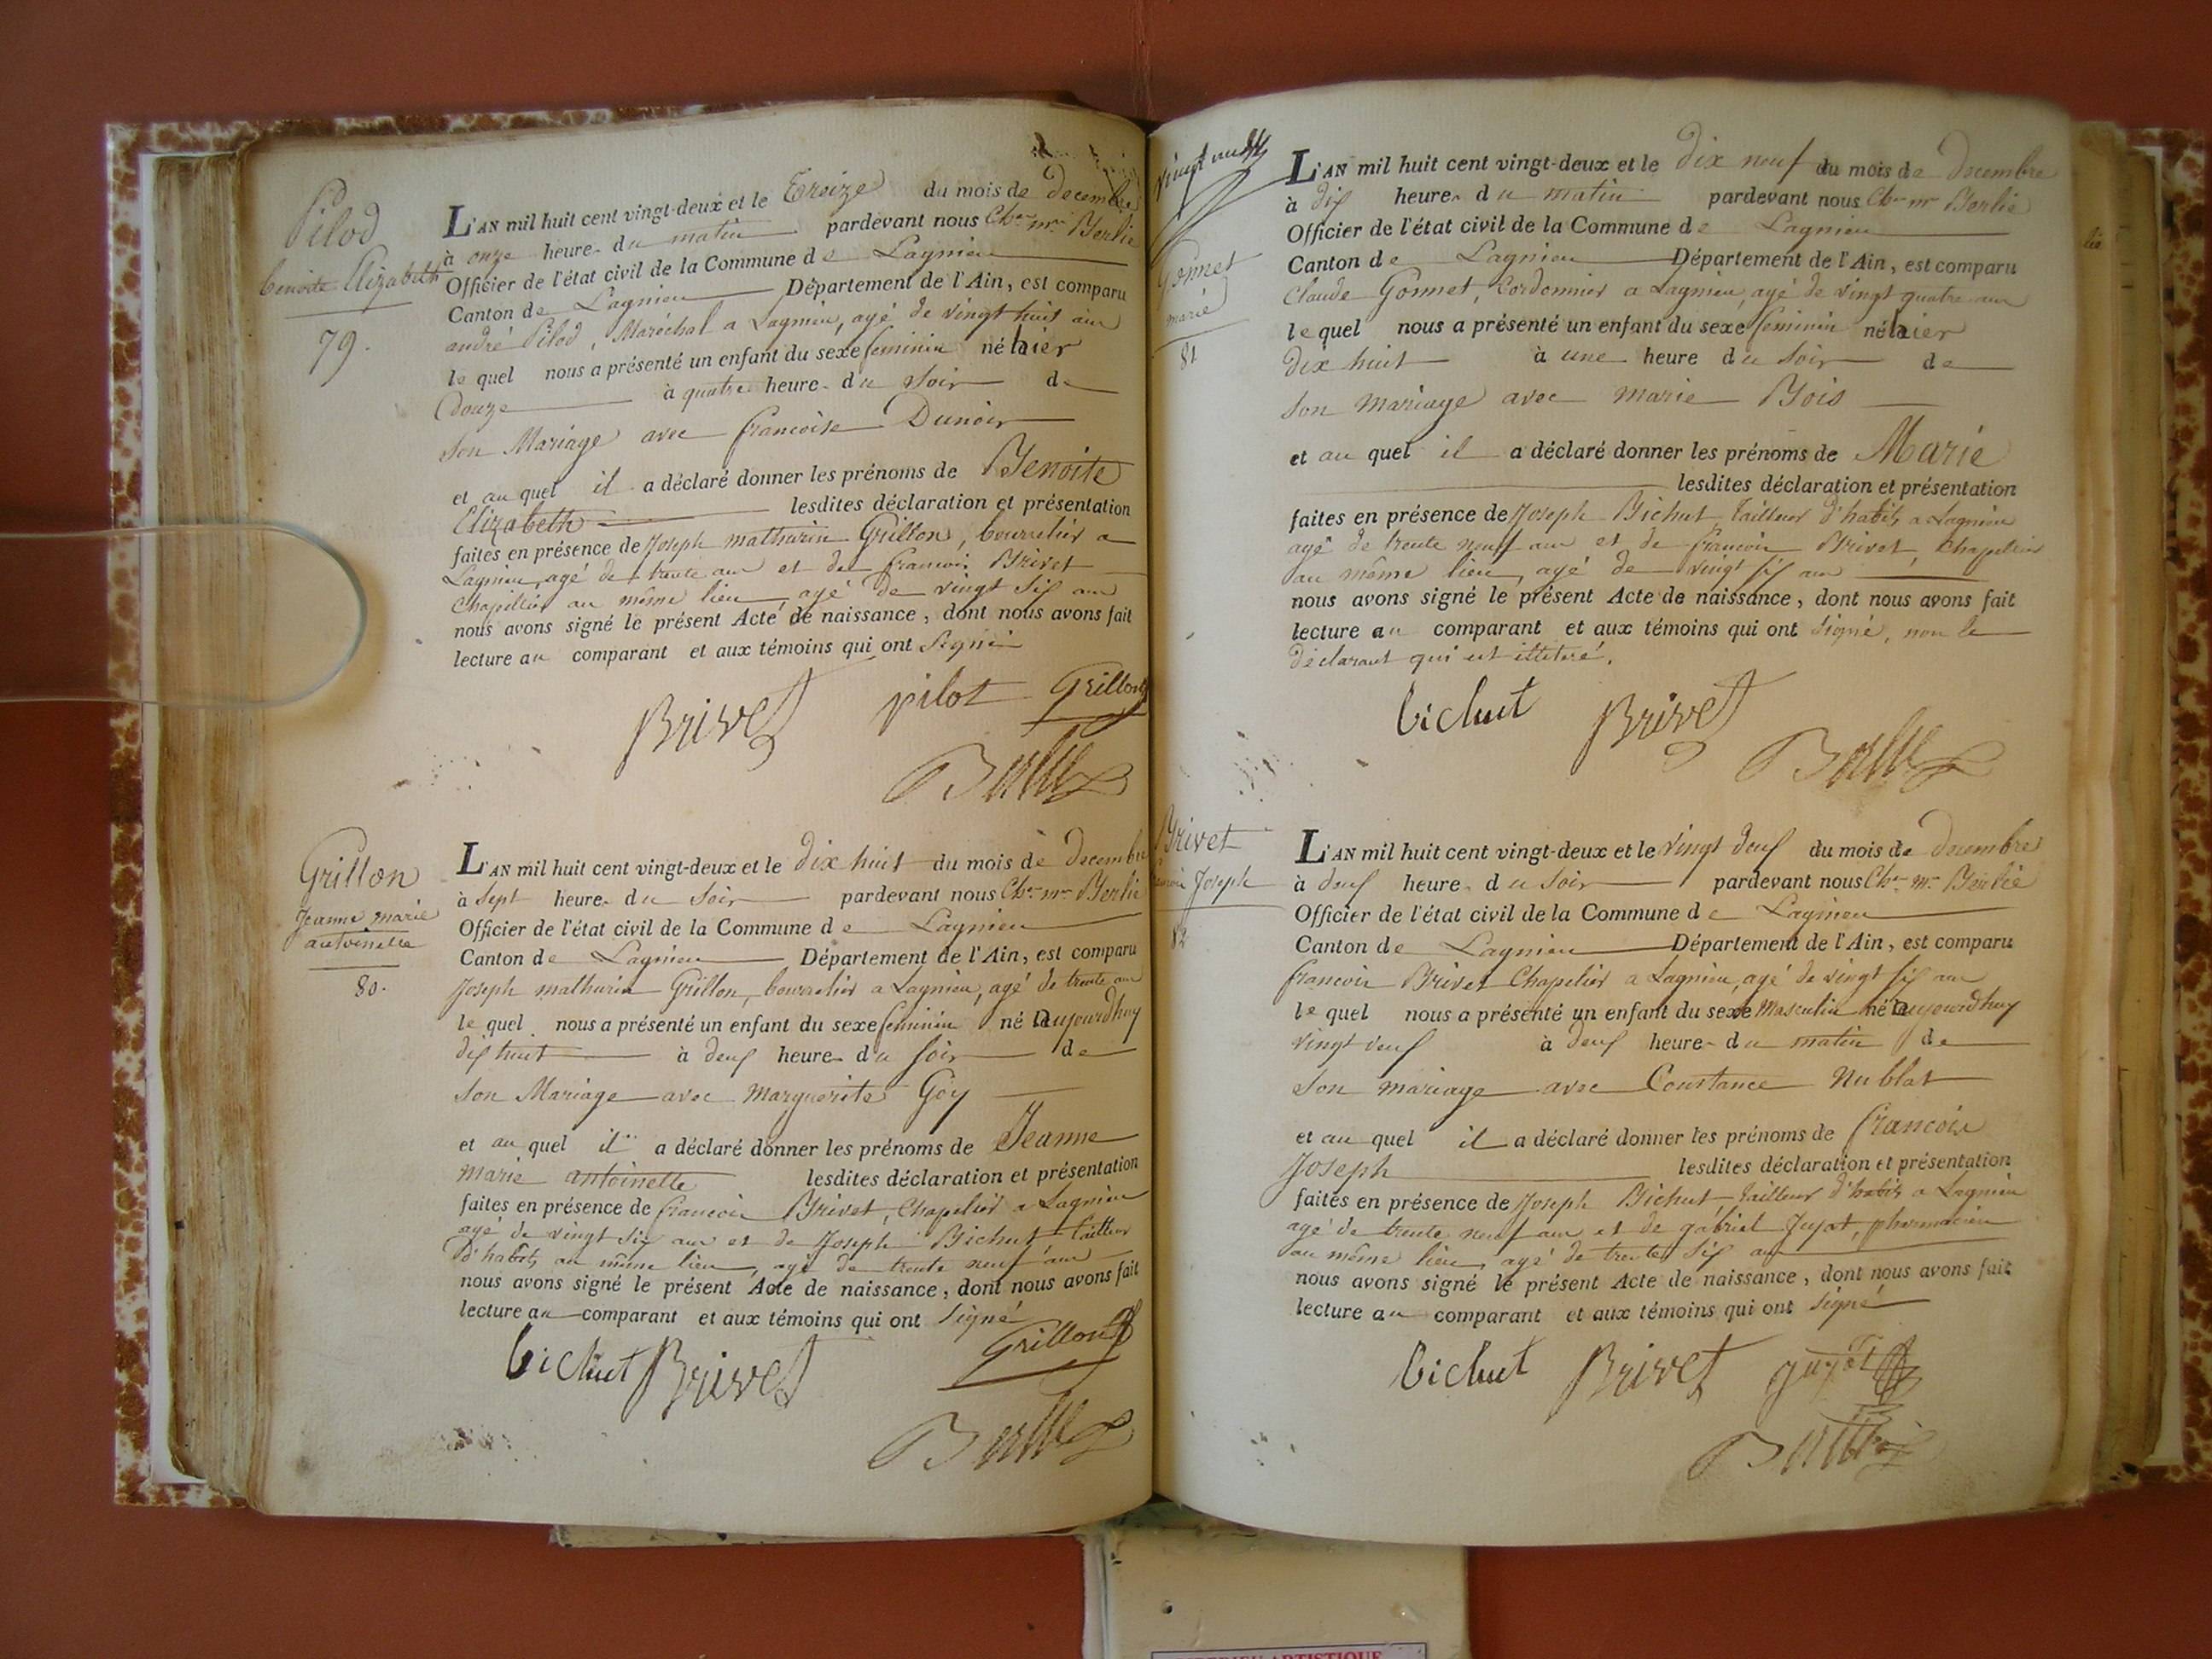 Pilod
benoite Elizabeth
79.
L'AN mil huit cent vingt-deux et le Treize du mois de decembre
à onze heure du matin pardevant nous Ch.er m.ie Berlie
Officier de l'état civil de la Commune de Lagnieu
Canton de Lagnieu Département de l'Ain, est comparu
andré Pilod, Maréchal a Lagnieu, agé de vingt huit ans
le quel nous a présenté un enfant du sexe feminin né hier
Douze à quatre heure du soir de
son Mariage avec francoise Dunoir
et au quel il a déclaré donner les prénoms de Benoite
Elizabeth lesdites déclaration et présentation
faites en présence de Joseph mathurin Grillon, bourrelier a
Lagnieu, agé de trente ans et de francois Brivet
Chapellier au même lieu agé de vingt six ans
nous avons signé le présent Acte de naissance, dont nous avons fait
lecture au comparant et aux témoins qui ont signé
Brivet pilot Grillon
Berlie
Grillon
Jeanne marie
antoinette
80.
L'AN mil huit cent vingt-deux et le dix huit du mois de decembre
à sept heure du soir pardevant nous Ch.er m.ie Berlie
Officier de l'état civil de la Commune de Lagnieu
Canton de Lagnieu Département de l'Ain, est comparu
Joseph mathurin Grillon, bourrelier a Lagnieu, agé de trente ans
le quel nous a présenté un enfant du sexe feminin né aujourdhuy
dix huit à deux heure du soir de
son Mariage avec marguerite Goy
et au quel il a déclaré donner les prénoms de Jeanne
marie antoinette lesdites déclaration et présentation
faites en présence de francois Brivet, Chapelier a Lagnieu
agé de vingt six ans et de Joseph Bichut tailleur
d'habits au même lieu, agé de trente neuf ans
nous avons signé le présent Acte de naissance, dont nous avons fait
lecture au comparant et aux témoins qui ont signé
bichut Brivet Grillon
Berlie
Gonnet
marie
81
L'AN mil huit cent vingt-deux et le dix neuf du mois de decembre
à dix heure du matin pardevant nous Ch.er m.ie Berlie
Officier de l'état civil de la Commune de Lagnieu
Canton de Lagnieu Département de l'Ain, est comparu
Claude Gonnet, Cordonnier a Lagnieu, agé de vingt quatre ans
le quel nous a présenté un enfant du sexe feminin né hier
dix huit à une heure du soir de
son mariage avec marie Bois
et au quel il a déclaré donner les prénoms de Marie
lesdites déclaration et présentation
faites en présence de Joseph Bichut tailleur d'habits a Lagnieu
agé de trente neuf ans et de francois Brivet, Chapelier
au même lieu, agé de vingt six ans
nous avons signé le présent Acte de naissance, dont nous avons fait
lecture au comparant et aux témoins qui ont signé, non le
déclarant qui est illiteré.
bichut Brivet
Berlie
Brivet
francois Joseph
82
L'AN mil huit cent vingt-deux et le vingt deux du mois de decembre
à deux heure du soir pardevant nous Ch.er m.ie Berlie
Officier de l'état civil de la Commune de Lagnieu
Canton de Lagnieu Département de l'Ain, est comparu
francois Brivet Chapelier a Lagnieu, agé de vingt six ans
le quel nous a présenté un enfant du sexe masculin né aujourdhuy
vingt deux à deux heure du matin de
son mariage avec Constance Nublat
et au quel il a déclaré donner les prénoms de francois
Joseph lesdites déclaration et présentation
faites en présence de Joseph Bichut tailleur d'habits a Lagnieu
agé de trente neuf ans et de gabriel Juyat, pharmacien
au même lieu, agé de trente six ans
nous avons signé le présent Acte de naissance, dont nous avons fait
lecture au comparant et aux témoins qui ont signé
bichut Brivet guyot
Berlie